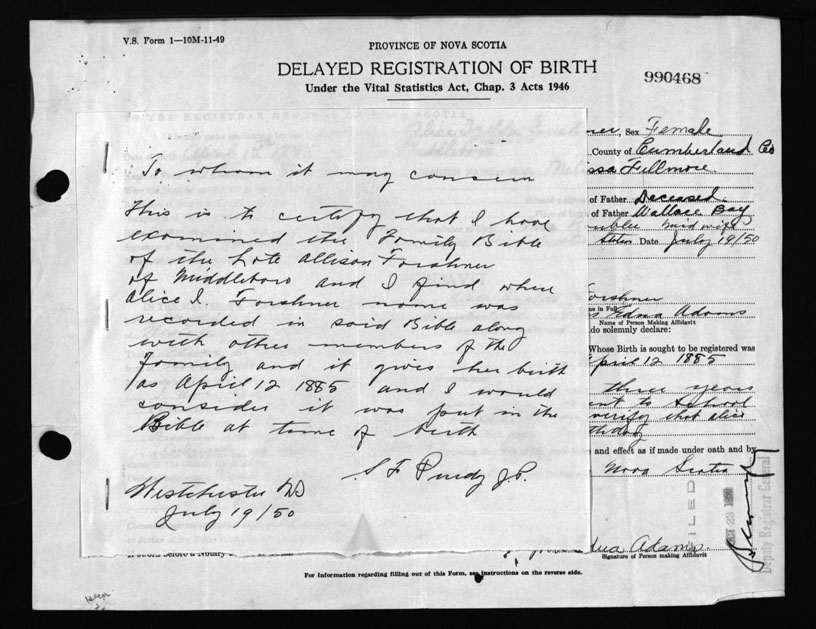 V.S. Form 1—10M-11-49
PROVINCE OF NOVA SCOTIA
DELAYED REGISTRATION OF BIRTH
Under the Vital Statistics Act, Chap. 3 Acts 1946
990468
To whom it may concern
This is to certify that I have
examined the Family Bible
of the late Allison Forshner
of Middleboro and I find where
Alice I. Forshner name was
recorded in said Bible along
with other members of the
family and it gives her birth
as April 12 1885 and I would
consider it was put in the
Bible at time of birth
S F Purdy J.P.
Westchester NS
July 19/50
ner, Sex Female
County of Cumberland Co
ssa Fillmore
of Father Deceased
of Father Wallace Bay
midwife
Date July 19/50
Forshner
me in Full
Edna Adams
Name of Person Making Affidavit
do solemnly declare:
Whose Birth is sought to be registered was
April 12 1885
three years
ent to School
verify that Alice
thday
and effect as if made under oath and by
Nova Scotia
FILED
Deputy Registrar General
dna Adams.
Signature of Person making Affidavit
For Information regarding filling out of this Form, see instructions on the reverse side.